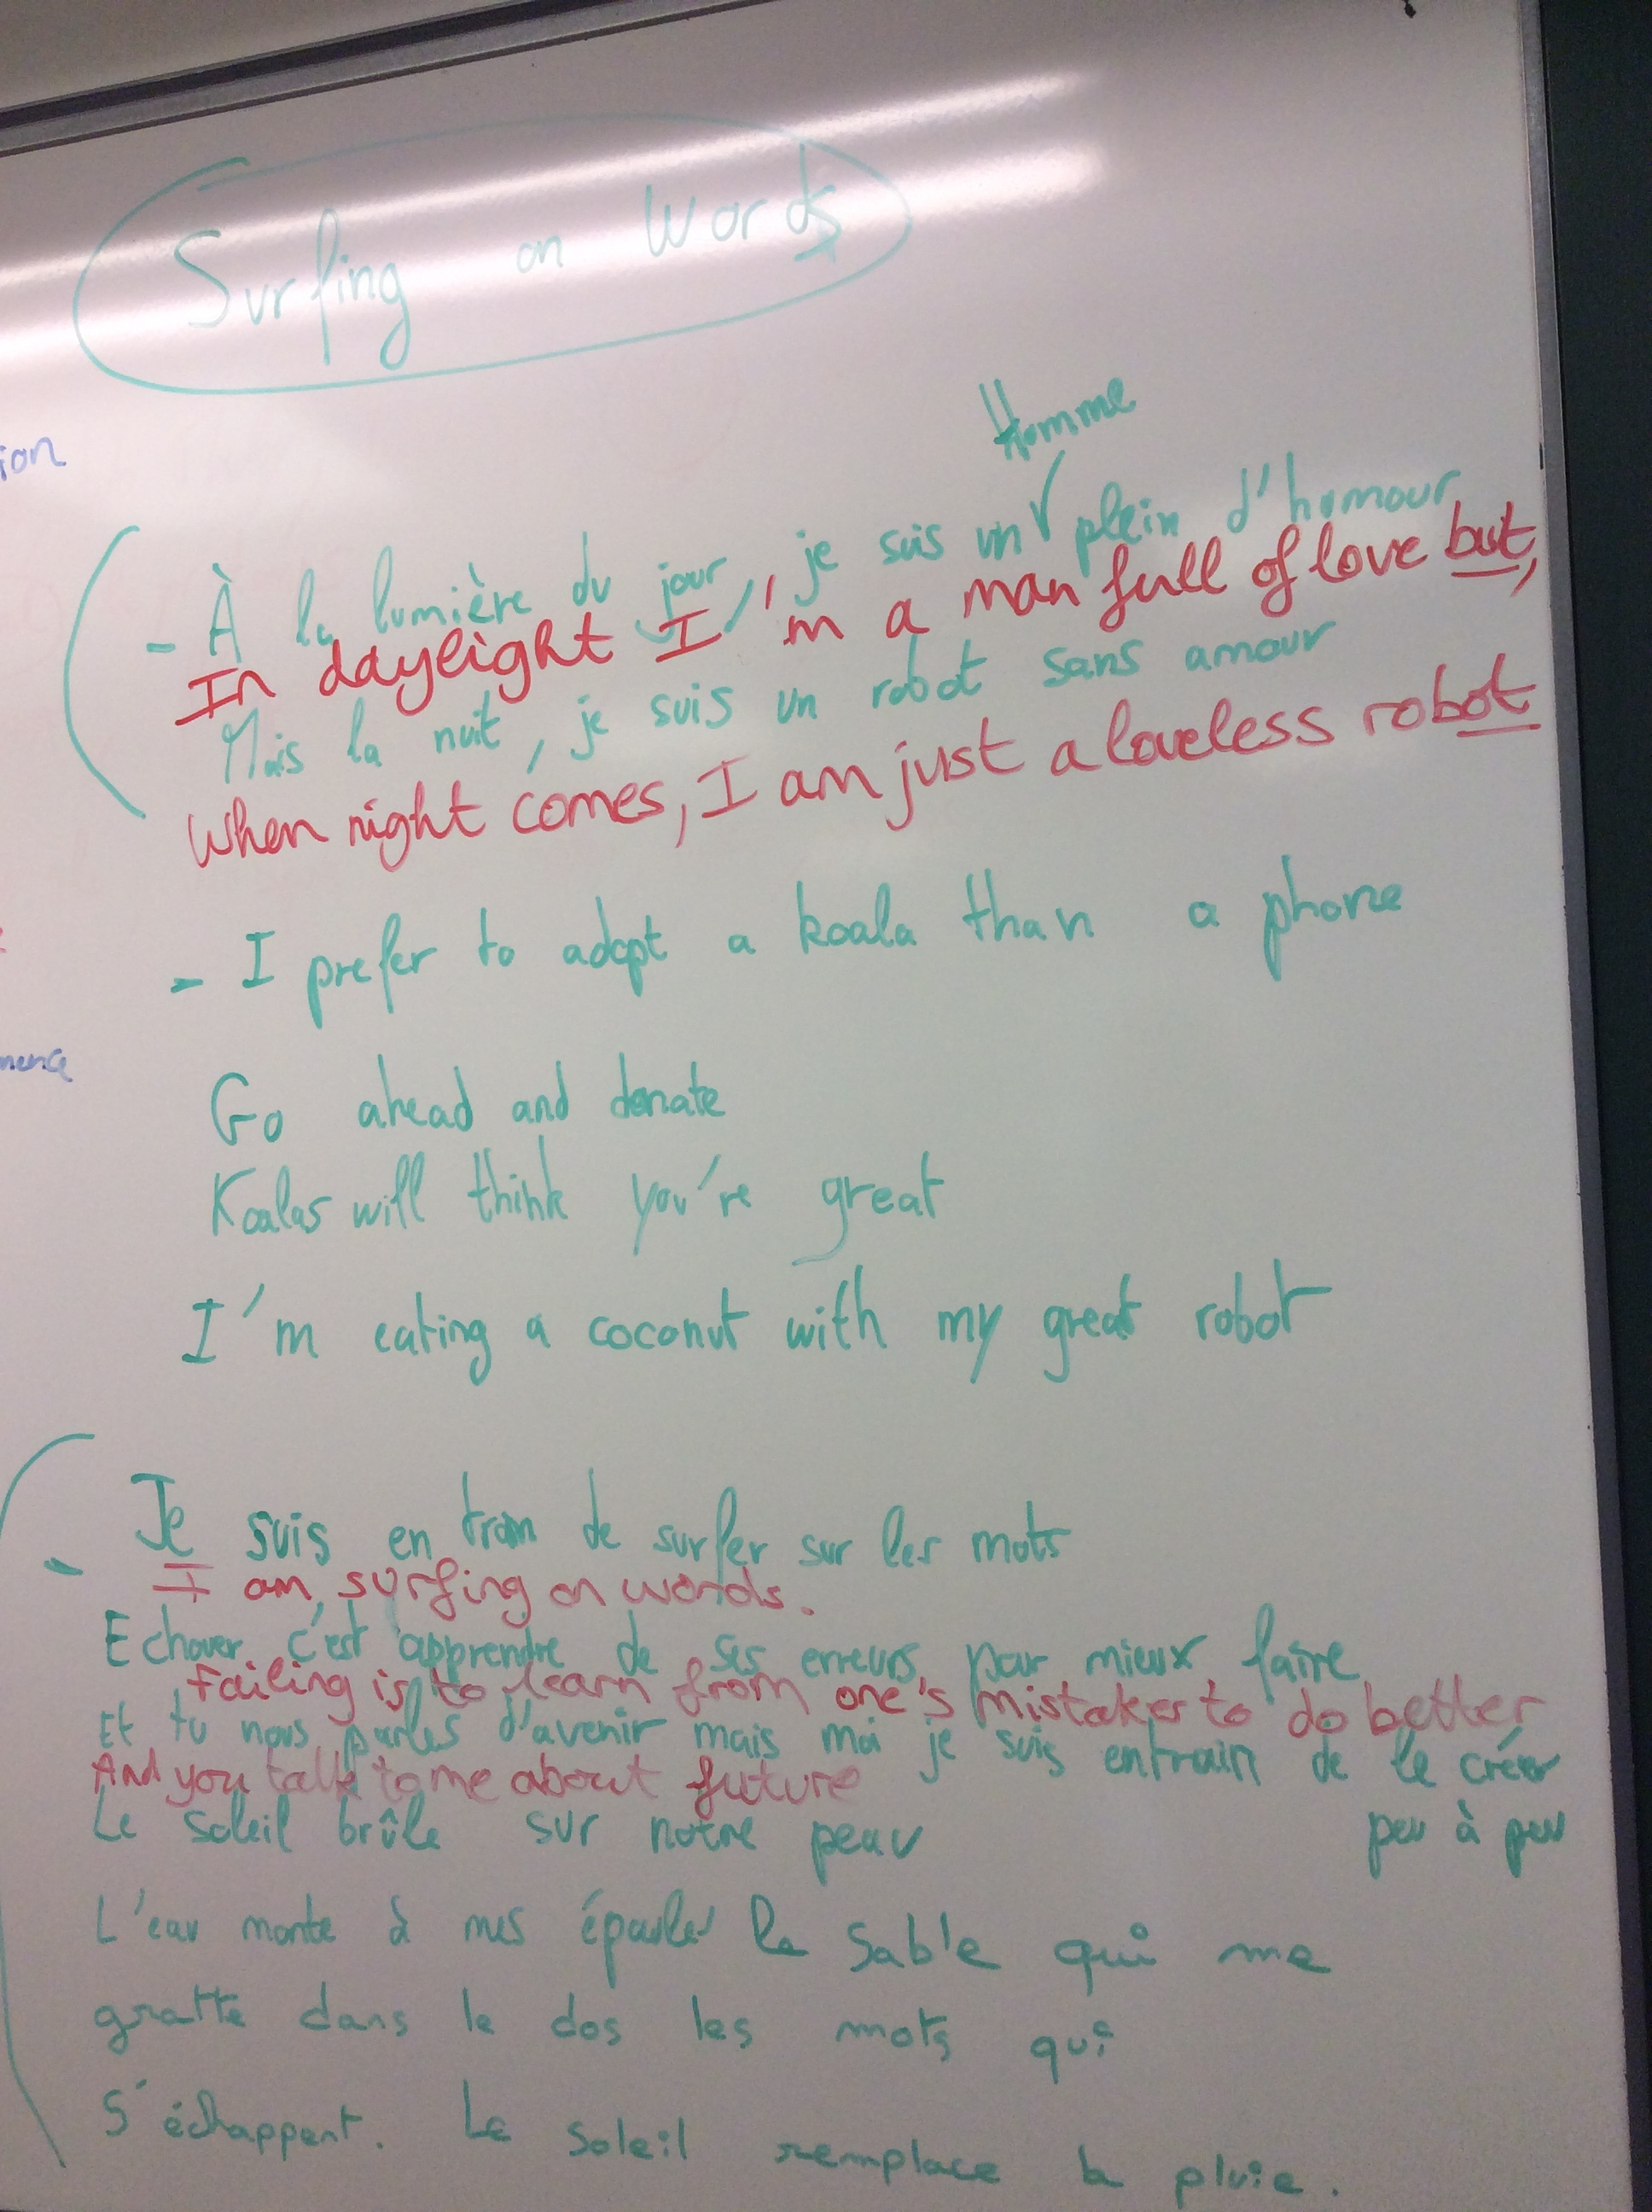 Surfing on Words
ion
Homme
- À la lumière du jour, je suis un plein d'humour
In daylight I'm a man full of love but,
Mais la nuit, je suis un robot sans amour
When night comes, I am just a loveless robot
- I prefer to adopt a koala than a phone
Go ahead and donate
Koalas will think you're great
I'm eating a coconut with my great robot
- Je suis en train de surfer sur les mots
I am surfing on words.
Echouer c'est apprendre de ses erreurs pour mieux faire
Failing is to learn from one's mistakes to do better
Et tu nous parles d'avenir mais moi je suis entrain de le créer
peu à peu
And you talk to me about future
Le soleil brûle sur notre peau
L'eau monte à mes épaules le sable qui me
gratte dans le dos les mots qui
s'échappent. Le soleil remplace la pluie.